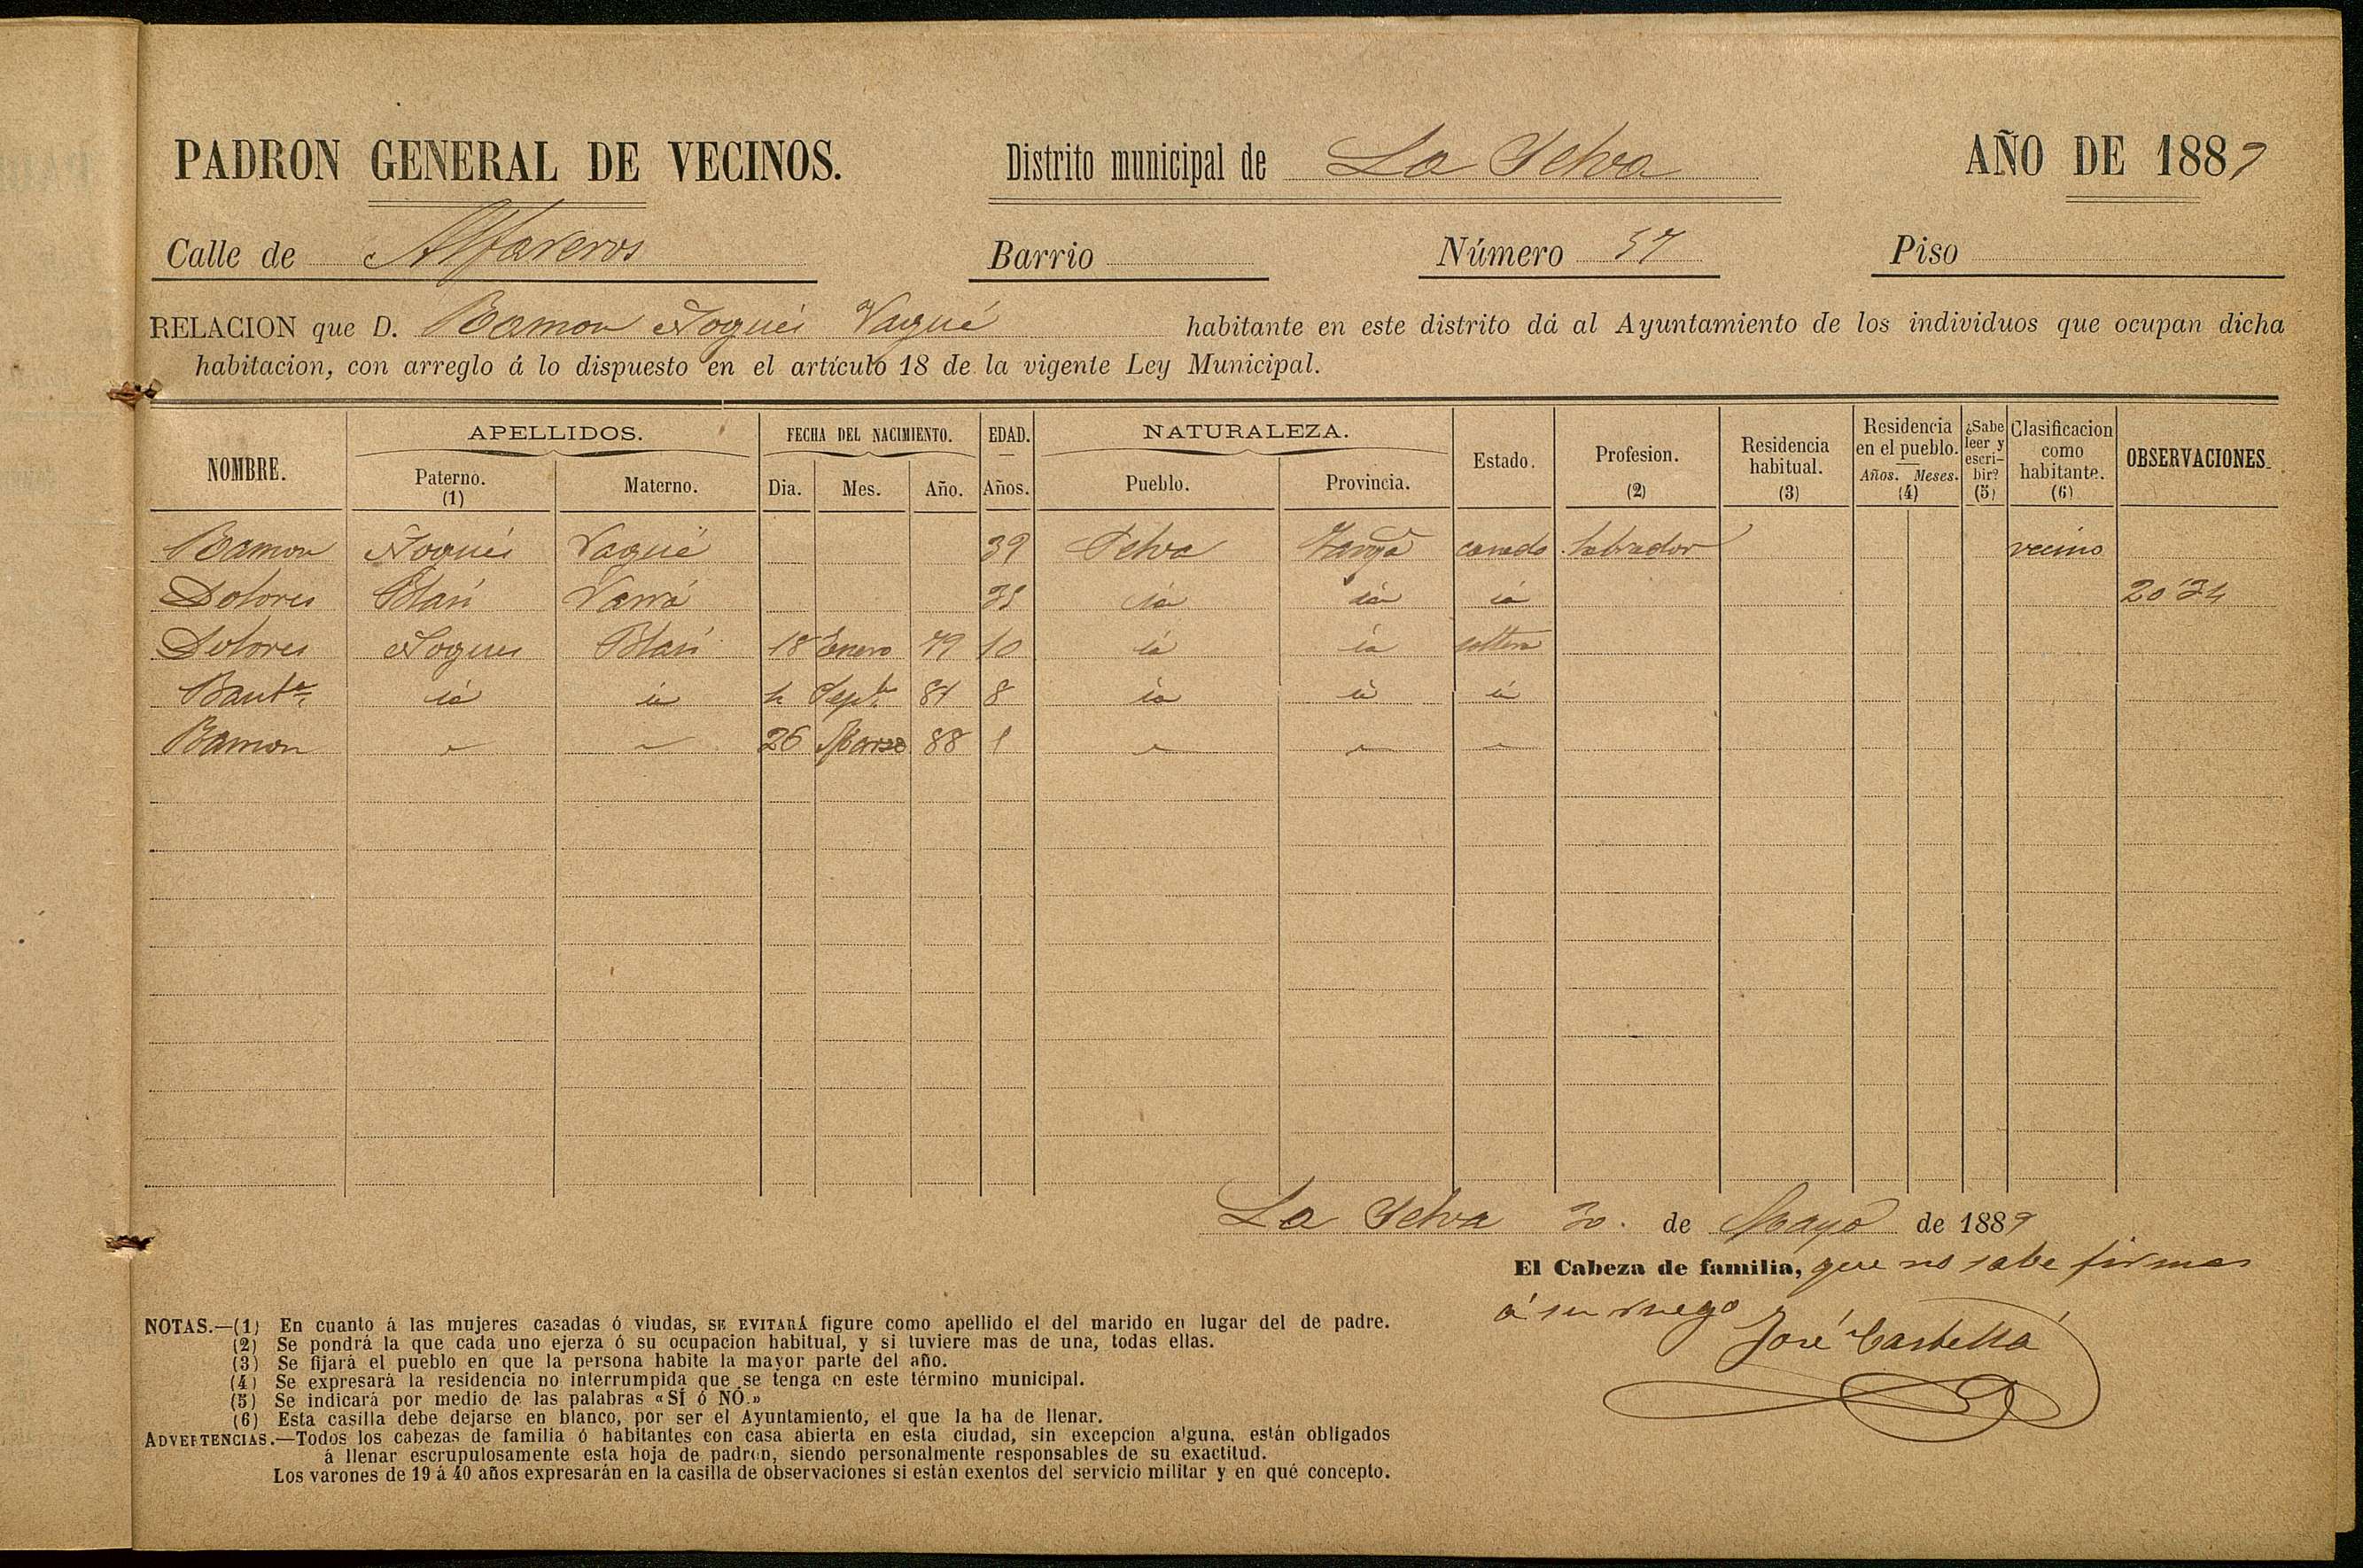 PADRON GENERAL DE VECINOS. Distrito municipal de La Selva AÑO DE 1889
Calle de Alfareros Barrio Número 57 Piso
RELACION que D. Ramon Nogués Vagué habitante en este distrito dá al Ayuntamiento de los individuos que ocupan dicha
habitacion, con arreglo á lo dispuesto en el artículo 18 de la vigente Ley Municipal.
NOMBRE. APELLIDOS. Paterno. (1) Materno. FECHA DEL NACIMIENTO. Dia. Mes. Año. EDAD. Años. NATURALEZA. Pueblo. Provincia. Estado. Profesion. (2) Residencia habitual. (3) Residencia en el pueblo. Años. Meses. (4) ¿Sabe leer y escribir? (5) Clasificacion como habitante. (6) OBSERVACIONES.
Ramon Nogués Vagué 39 Selva Tarrgª casado labrador vecino
Dolores Blasi 35 id id id 20'34
Dolores Nogues Blasi 18 Enero 79 10 id id soltera
Bautª id id 4 Septe 81 8 id id id
Ramon " " 26 Marzo 88 1 " " "
La Selva 30. de Mayo de 1889
El Cabeza de familia, que no sabe firmar
á su ruego
José Castellá
NOTAS.—(1) En cuanto á las mujeres casadas ó viudas, SE EVITARÁ figure como apellido el del marido en lugar del de padre.
(2) Se pondrá la que cada uno ejerza ó su ocupacion habitual, y si tuviere mas de una, todas ellas.
(3) Se fijará el pueblo en que la persona habite la mayor parte del año.
(4) Se expresará la residencia no interrumpida que se tenga en este término municipal.
(5) Se indicará por medio de las palabras «SÍ ó NÓ.»
(6) Esta casilla debe dejarse en blanco, por ser el Ayuntamiento, el que la ha de llenar.
ADVERTENCIAS.—Todos los cabezas de familia ó habitantes con casa abierta en esta ciudad, sin excepcion alguna, están obligados
á llenar escrupulosamente esta hoja de padron, siendo personalmente responsables de su exactitud.
Los varones de 19 á 40 años expresarán en la casilla de observaciones si están exentos del servicio militar y en qué concepto.